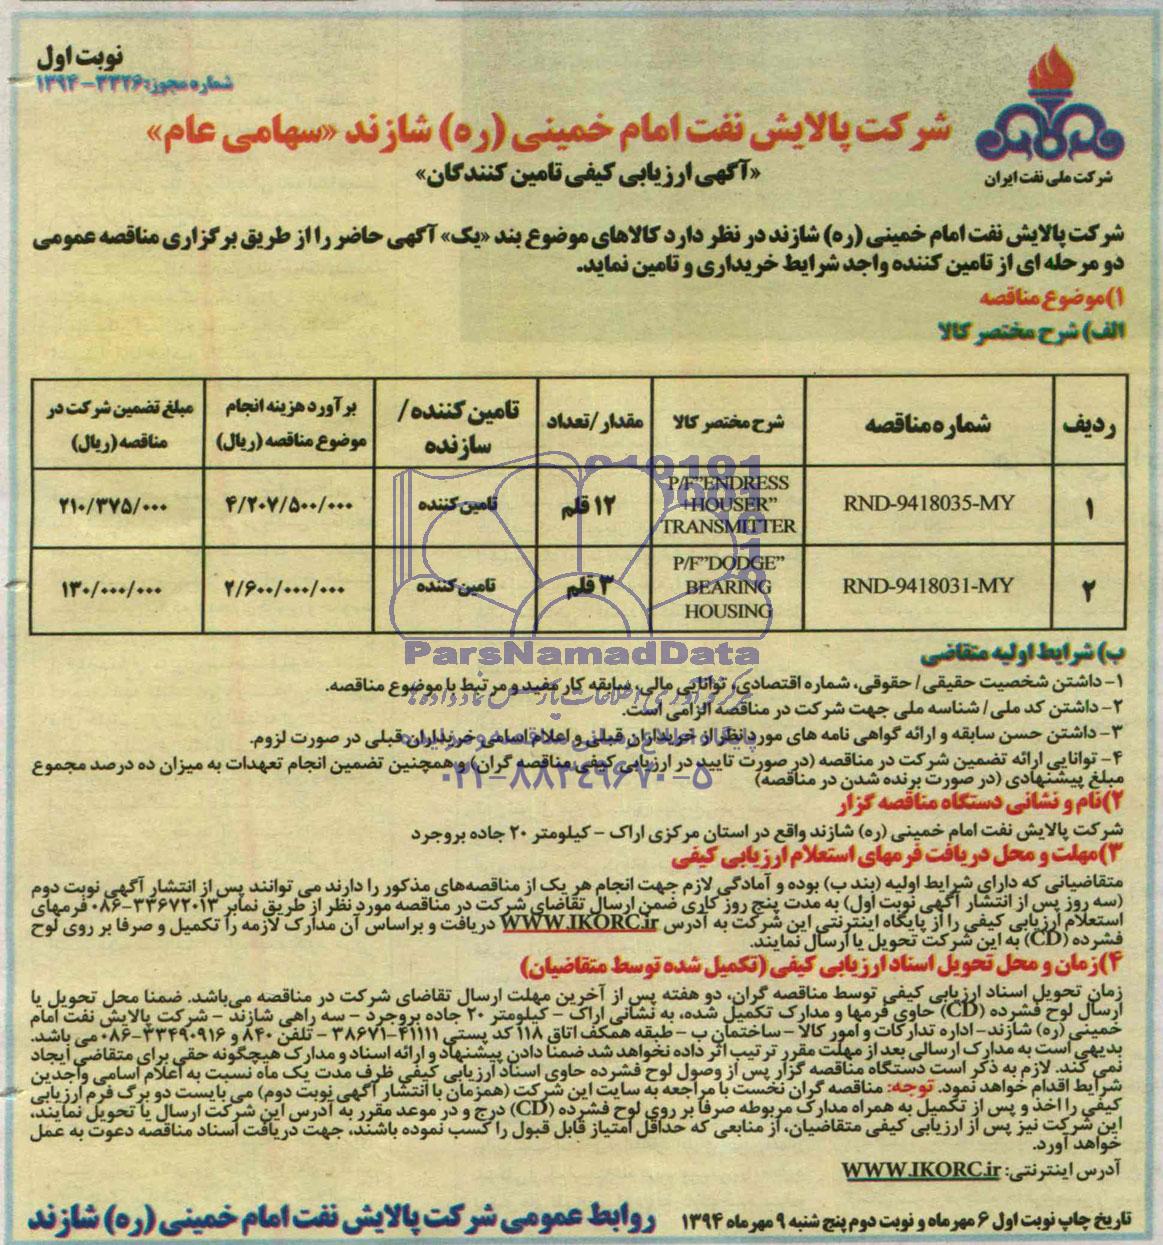 نوبت اول
شماره مجوز: ۳۳۲۶-۱۳۹۴
شرکت ملی نفت ایران
شرکت پالایش نفت امام خمینی (ره) شازند «سهامی عام»
«آگهی ارزیابی کیفی تامین کنندگان»
شرکت پالایش نفت امام خمینی (ره) شازند در نظر دارد کالاهای موضوع بند «یک» آگهی حاضر را از طریق برگزاری مناقصه عمومی
دو مرحله ای از تامین کننده واجد شرایط خریداری و تامین نماید.
۱)موضوع مناقصه
الف) شرح مختصر کالا
ردیف	شماره مناقصه	شرح مختصر کالا	مقدار /تعداد	تامین کننده / سازنده	برآورد هزینه انجام موضوع مناقصه (ریال)	مبلغ تضمین شرکت در مناقصه (ریال)
۱	RND-9418035-MY	P/F"ENDRESS +HOUSER" TRANSMITTER	۱۲ قلم	تامین کننده	۴/۲۰۷/۵۰۰/۰۰۰	۲۱۰/۳۷۵/۰۰۰
۲	RND-9418031-MY	P/F"DODGE" BEARING HOUSING	۳ قلم	تامین کننده	۲/۶۰۰/۰۰۰/۰۰۰	۱۳۰/۰۰۰/۰۰۰
ParsNamadData
ب) شرایط اولیه متقاضی
۱- داشتن شخصیت حقیقی/ حقوقی، شماره اقتصادی، توانایی مالی، سابقه کار مفید و مرتبط با موضوع مناقصه.
۲- داشتن کد ملی/ شناسه ملی جهت شرکت در مناقصه الزامی است.
۳- داشتن حسن سابقه و ارائه گواهی نامه های مورد نظر از خریداران قبلی و اعلام اسامی خریداران قبلی در صورت لزوم.
۴- توانایی ارائه تضمین شرکت در مناقصه (در صورت تایید در ارزیابی کیفی مناقصه گران) و همچنین تضمین انجام تعهدات به میزان ده درصد مجموع
مبلغ پیشنهادی (در صورت برنده شدن در مناقصه)
۰۲۱-۸۸۳۴۹۶۷۰-۵
۲)نام و نشانی دستگاه مناقصه گزار
شرکت پالایش نفت امام خمینی (ره) شازند واقع در استان مرکزی اراک - کیلومتر ۲۰ جاده بروجرد
۳)مهلت و محل دریافت فرمهای استعلام ارزیابی کیفی
متقاضیانی که دارای شرایط اولیه (بند ب) بوده و آمادگی لازم جهت انجام هر یک از مناقصه‌های مذکور را دارند می توانند پس از انتشار آگهی نوبت دوم
(سه روز پس از انتشار آگهی نوبت اول) به مدت پنج روز کاری ضمن ارسال تقاضای شرکت در مناقصه مورد نظر از طریق نمابر ۳۳۶۷۲۰۱۳-۰۸۶ فرمهای
استعلام ارزیابی کیفی را از پایگاه اینترنتی این شرکت به آدرس WWW.IKORC.ir دریافت و براساس آن مدارک لازمه را تکمیل و صرفا بر روی لوح
فشرده (CD) به این شرکت تحویل یا ارسال نمایند.
۴)زمان و محل تحویل اسناد ارزیابی کیفی (تکمیل شده توسط متقاضیان)
زمان تحویل اسناد ارزیابی کیفی توسط مناقصه گران، دو هفته پس از آخرین مهلت ارسال تقاضای شرکت در مناقصه می‌باشد. ضمنا محل تحویل یا
ارسال لوح فشرده (CD) حاوی فرمها و مدارک تکمیل شده، به نشانی اراک - کیلومتر ۲۰ جاده بروجرد - سه راهی شازند - شرکت پالایش نفت امام
خمینی (ره) شازند- اداره تدارکات و امور کالا - ساختمان ب - طبقه همکف اتاق ۱۱۸ کد پستی ۴۱۱۱۱-۳۸۶۷۱ - تلفن ۸۴۰ و ۳۳۴۹۰۹۱۶-۰۸۶ می باشد.
بدیهی است به مدارک ارسالی بعد از مهلت مقرر ترتیب اثر داده نخواهد شد ضمنا دادن پیشنهاد و ارائه اسناد و مدارک هیچگونه حقی برای متقاضی ایجاد
نمی کند. لازم به ذکر است دستگاه مناقصه گزار پس از وصول لوح فشرده حاوی اسناد ارزیابی کیفی ظرف مدت یک ماه نسبت به اعلام اسامی واجدین
شرایط اقدام خواهد نمود. توجه: مناقصه گران نخست با مراجعه به سایت این شرکت (همزمان با انتشار آگهی نوبت دوم) می بایست دو برگ فرم ارزیابی
کیفی را اخذ و پس از تکمیل به همراه مدارک مربوطه صرفا بر روی لوح فشرده (CD) درج و در موعد مقرر به آدرس این شرکت ارسال یا تحویل نمایند،
این شرکت نیز پس از ارزیابی کیفی متقاضیان، از منابعی که حداقل امتیاز قابل قبول را کسب نموده باشند، جهت دریافت اسناد مناقصه دعوت به عمل
خواهد آورد.
آدرس اینترنتی: WWW.IKORC.ir
تاریخ چاپ نوبت اول ۶ مهرماه و نوبت دوم پنج شنبه ۹ مهرماه ۱۳۹۴
روابط عمومی شرکت پالایش نفت امام خمینی (ره) شازند